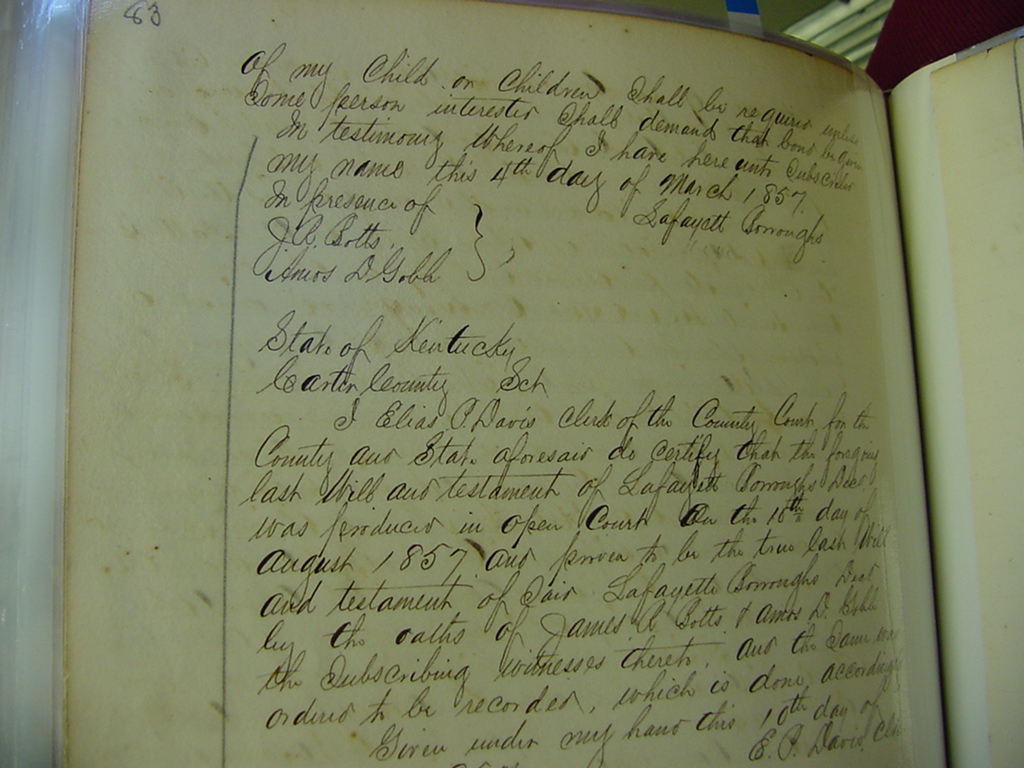 63
of my Child or Children Shall be required unless
Some person interested Shall demand that bond be given
In testimony thereof I have hereunto Subscribed
my name this 4th day of March 1857.
In presence of Lafayett Borroughs
J C Botts }
Amos D Gobb }
State of Kentucky
Carter County Sct
I Elias P Davis Clerk of the County Court for the
County and State aforesaid do Certify that the foregoing
last Will and testament of Lafayett Borroughs
was produced in open Court on the 10th day of
August 1857 and proven to be the true last Will
and testament of Said Lafayette Borroughs
by the oaths of James C Botts & Amos D
the Subscribing witnesses thereto and the Same was
ordered to be recorded, which is done accordingly
Given under my hand this 10th day of
E. P. Davis Clk